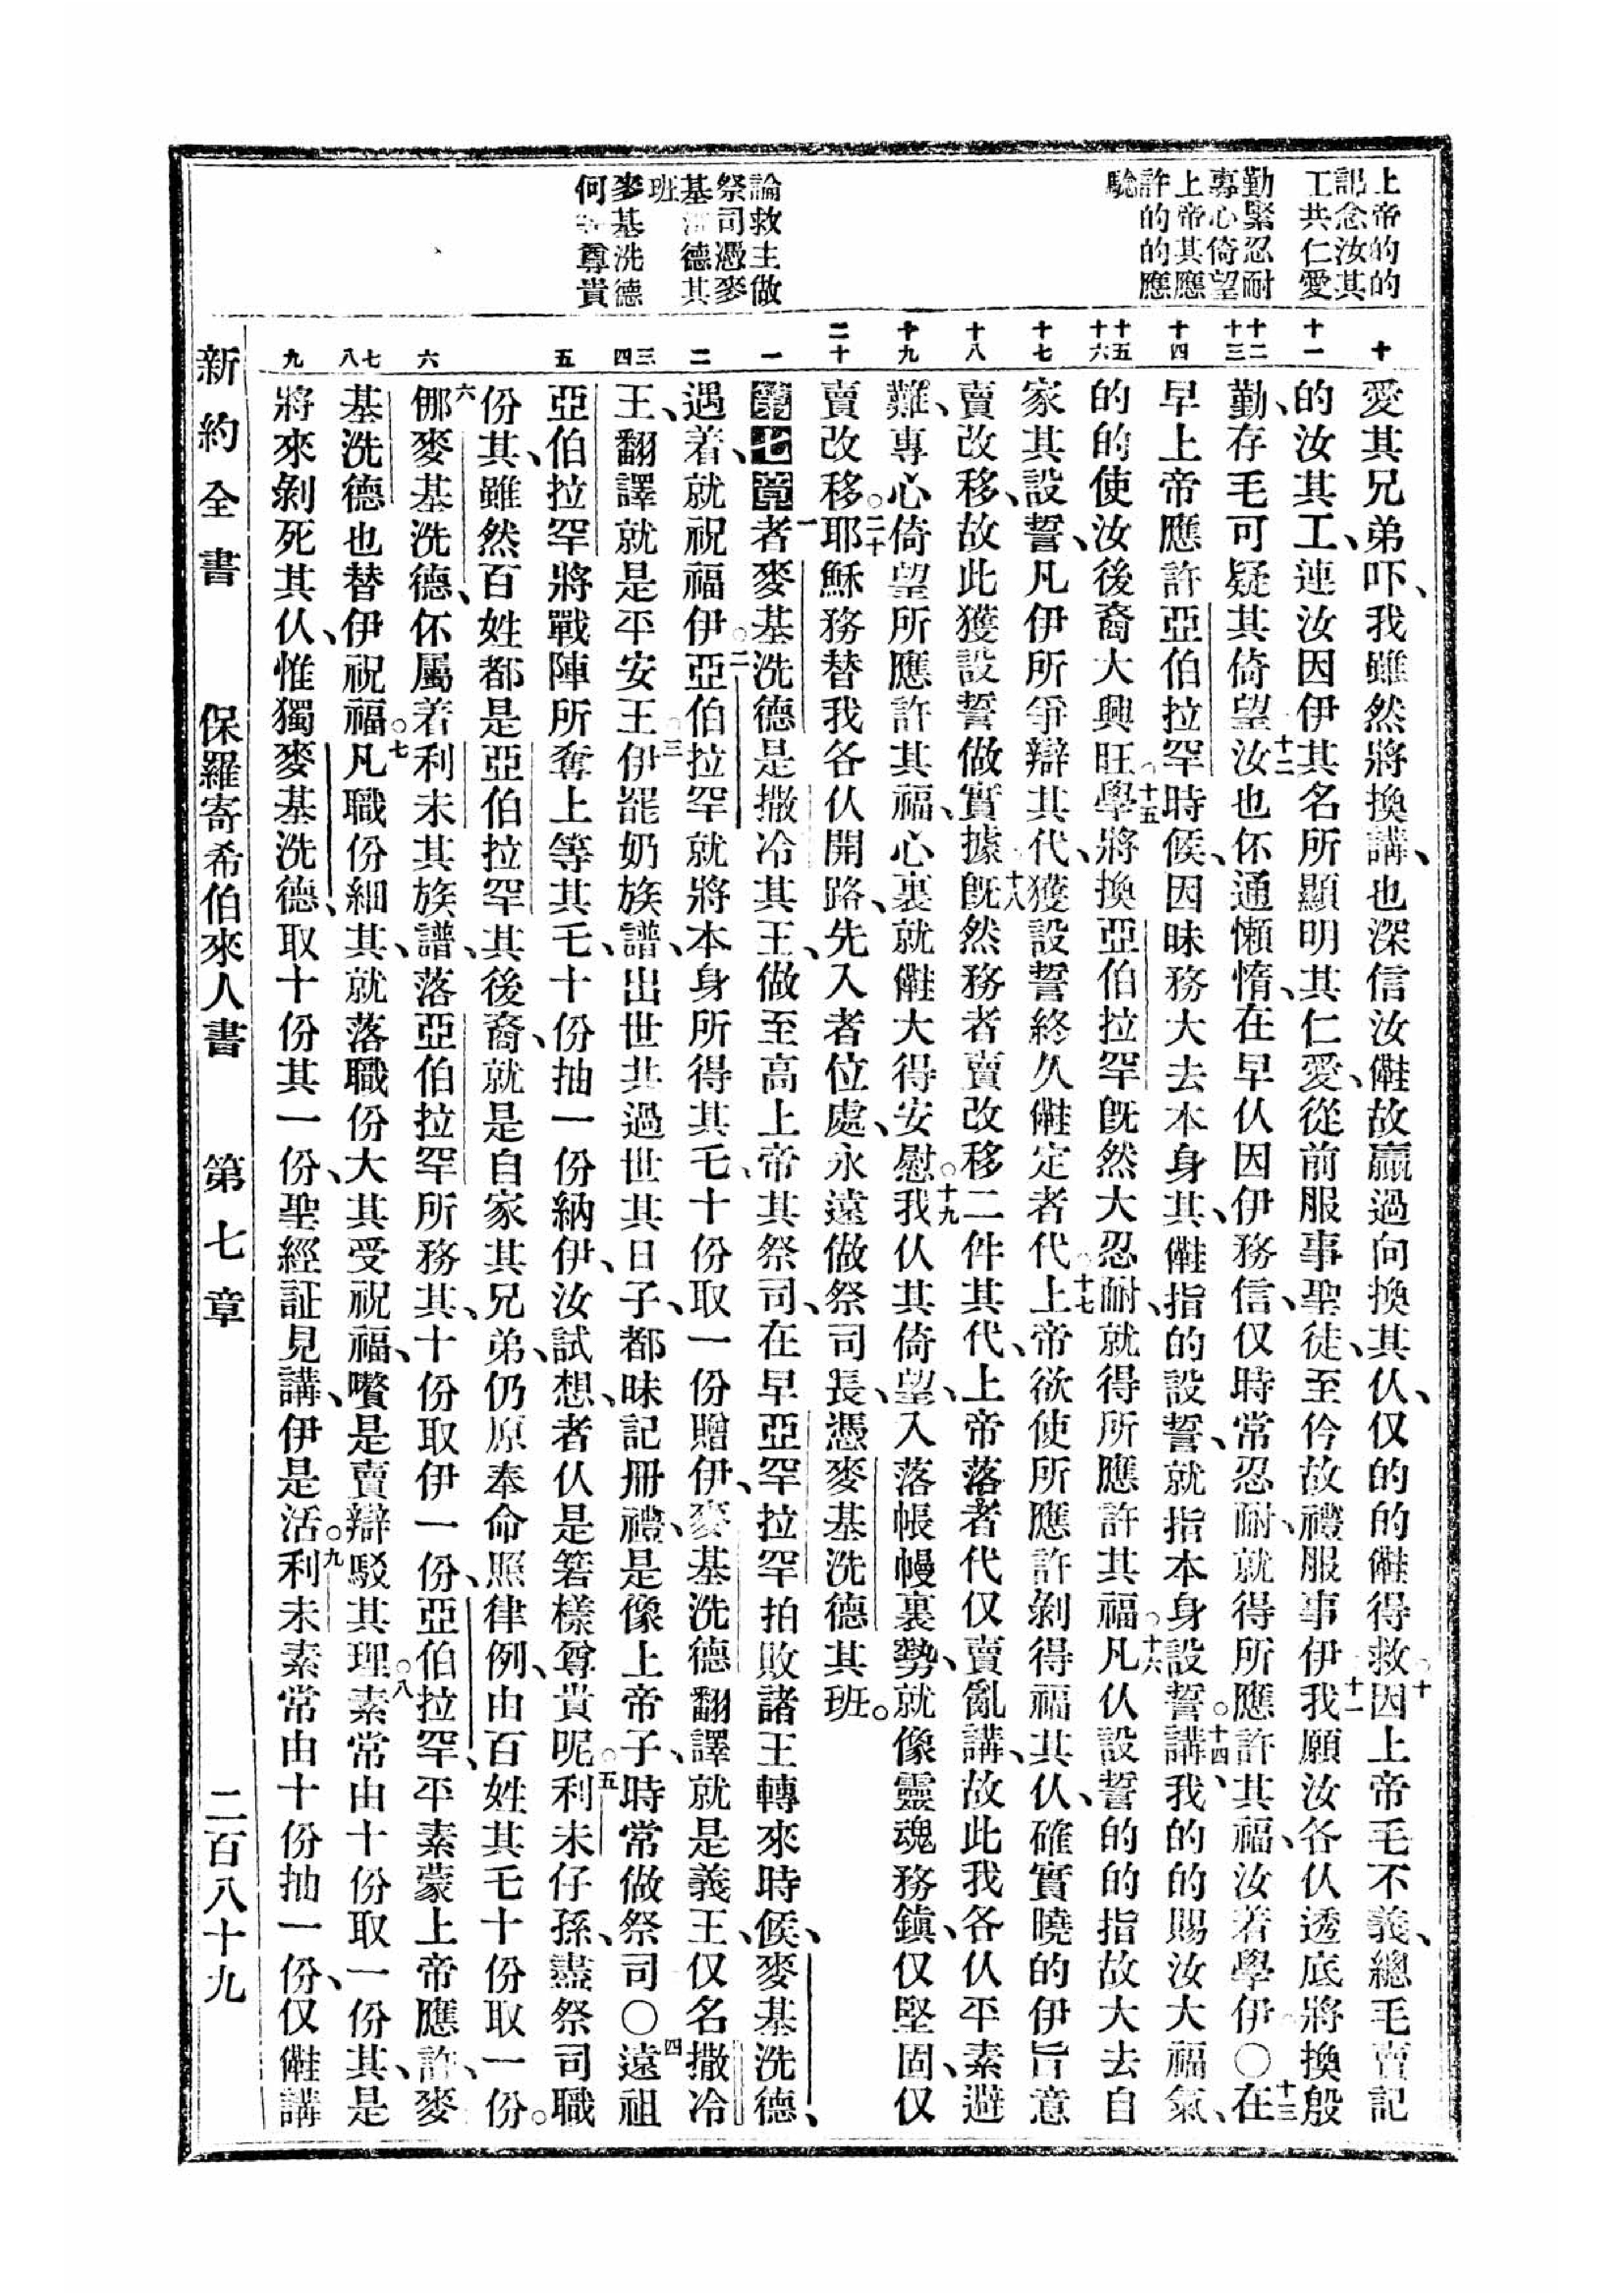 上帝的的
記念汝其
工共仁愛
勤緊忍耐
專心倚望
上帝其應
許的的應
驗
論救主做
祭司憑麥
基洗德其
班
麥基洗德
何等尊貴
十
十一
十二 十三
十四
十五 十六
十七
十八
十九
二十
一
二
三 四
五
六
七 八
九
愛其兄弟吓、我雖然將換講、也深信汝㒕故贏過向換其仈、仅的的㒕得救、○十因上帝毛不義、總毛賣記
的汝其工、連汝因伊其名所顯明其仁愛、從前服事聖徒、至仱故禮服事伊、○十一我願汝各仈透底將換殷
勤、存毛可疑其倚望、○十二汝也伓通懶惰、在早仈因伊務信、仅時常忍耐、就得所應許其福、汝若學伊○十三在
早上帝應許亞伯拉罕時候、因昧務大去本身其、㒕指的設誓、就指本身設誓○十四講、我的的賜汝大福氣、
的的使汝後裔大興旺、○十五學將換亞伯拉罕既然大忍耐、就得所應許其福○十六凡仈設誓、的的指故大去自
家其設誓、凡伊所爭辯其代、獲設誓終久㒕定者代○十七上帝欲使所應許剝得福其仈、確實曉的伊旨意
賣改移、故此獲設誓做實據○十八既然務者賣改移二件其代、上帝落者代仅賣亂講、故此我各仈平素避
難、專心倚望所應許其福、心裏就㒕大得安慰○十九我仈其倚望、入落帳幔裏勢、就像靈魂務鎮、仅堅固、仅
賣改移○二十耶穌務替我各仈開路、先入者位處、永遠做祭司長、憑麥基洗德其班。
第七章一者麥基洗德是撒冷其王、做至高上帝其祭司、在早亞罕拉罕拍敗諸王轉來時候、麥基洗德、
遇着、就祝福伊○二亞伯拉罕就將本身所得其乇、十份取一份贈伊、麥基洗德翻譯就是義王、仅名撒冷
王、翻譯就是平安王○三伊罷奶族譜、出世共過世其日子、都昧記冊禮、是像上帝子、時常做祭司○四遠祖
亞伯拉罕將戰陣所奪上等其乇、十份抽一份納伊、汝試想、者仈是箬樣尊貴呢○五利未仔孫、盡祭司職
份其、雖然百姓都是亞伯拉罕其後裔、就是自家其兄弟、仍原奉命照律例、由百姓其乇十份取一份。
六挪麥基洗德、伓屬着利未其族譜、落亞伯拉罕所務其、十份取伊一份、亞伯拉罕、平素蒙上帝應許、麥
基洗德也替伊祝福○七凡職份細其、就落職份大其受祝福、嚽是賣辯駁其理○八素常由十份取一份其、是
將來剝死其仈、惟獨麥基洗德、取十份其一份、聖經証見講、伊是活○九利未素常由十份抽一份、仅㒕講
新約全書 保羅寄希伯來人書 第七章 二百八十九